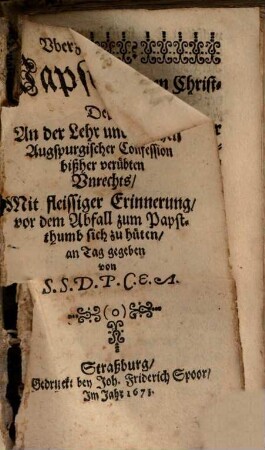 Vber
Papst en Christ-
De
An der Lehr und
Augspurgischer Confession
bißher verübten
Vnrechts/
Mit fleissiger Erinnerung/
vor dem Abfall zum Papst-
thumb sich zu hüten/
an Tag gegeben
von
S. S. D. P. C. E. A.
(o)
Straßburg/
Gedruckt bey Joh. Friderich Spoor/
Im Jahr 1671.